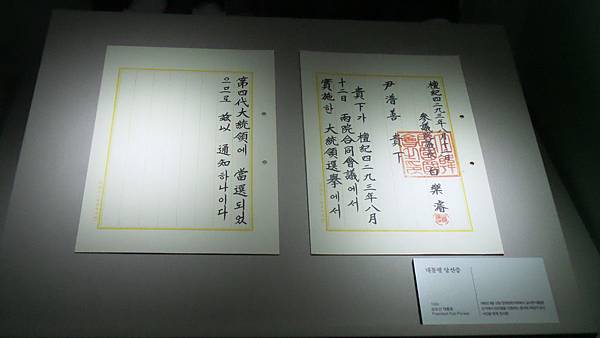 檀紀四二九三年八月十二日
參議院議長 白樂濬
尹潽善 貴下
貴下가 檀紀四二九三年八月
十二日 兩院合同會議에서
實施한 大統領選擧에서
第四代大統領에 當選되었
으므로 玆以 通知하나이다
대통령 당선증
1960
윤보선 대통령
President Yun Posun